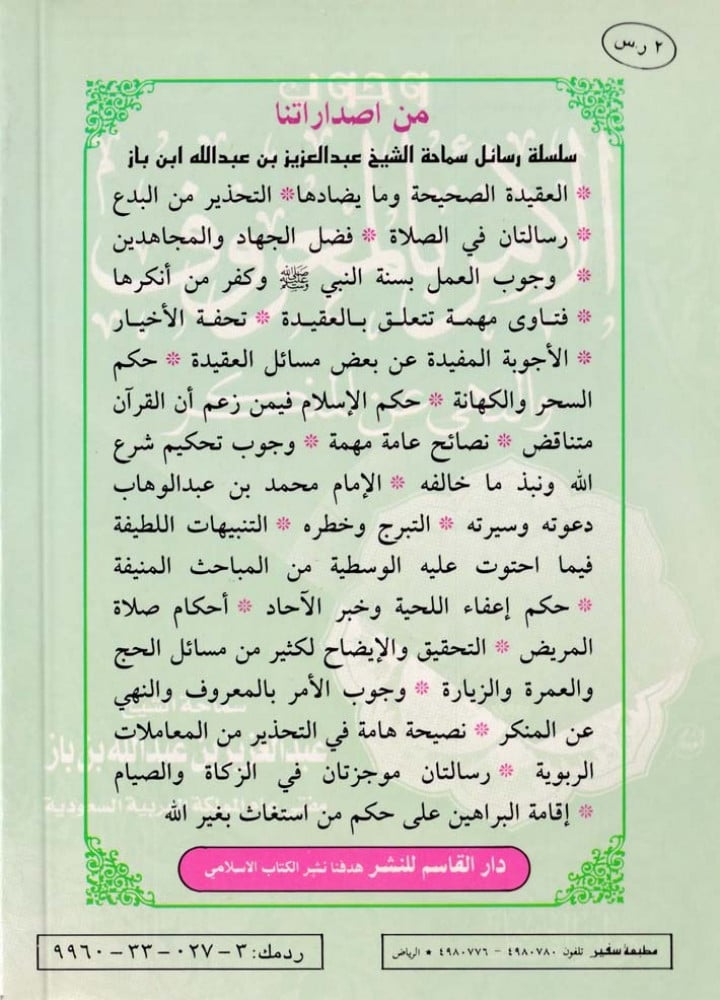 ٢ ر.س
من اصداراتنا
سلسلة رسائل سماحة الشيخ عبدالعزيز بن عبدالله ابن باز
* العقيدة الصحيحة وما يضادها * التحذير من البدع
* رسالتان في الصلاة * فضل الجهاد والمجاهدين
* وجوب العمل بسنة النبي ﷺ وكفر من أنكرها
* فتاوى مهمة تتعلق بالعقيدة * تحفة الأخيار
* الأجوبة المفيدة عن بعض مسائل العقيدة * حكم
السحر والكهانة * حكم الإسلام فيمن زعم أن القرآن
متناقض * نصائح عامة مهمة * وجوب تحكيم شرع
الله ونبذ ما خالفه * الإمام محمد بن عبدالوهاب
دعوته وسيرته * التبرج وخطره * التنبيهات اللطيفة
فيما احتوت عليه الوسطية من المباحث المنيفة
* حكم إعفاء اللحية وخبر الآحاد * أحكام صلاة
المريض * التحقيق والإيضاح لكثير من مسائل الحج
والعمرة والزيارة * وجوب الأمر بالمعروف والنهي
عن المنكر * نصيحة هامة في التحذير من المعاملات
الربوية * رسالتان موجزتان في الزكاة والصيام
* إقامة البراهين على حكم من استغاث بغير الله
دار القاسم للنشر هدفنا نشر الكتاب الاسلامي
مطبعة سفير تلفون ٤٩٨٠٧٨٠ – ٤٩٨٠٧٧٦ * الرياض
ردمك: ٣-٠٢٧-٣٣-٩٩٦٠